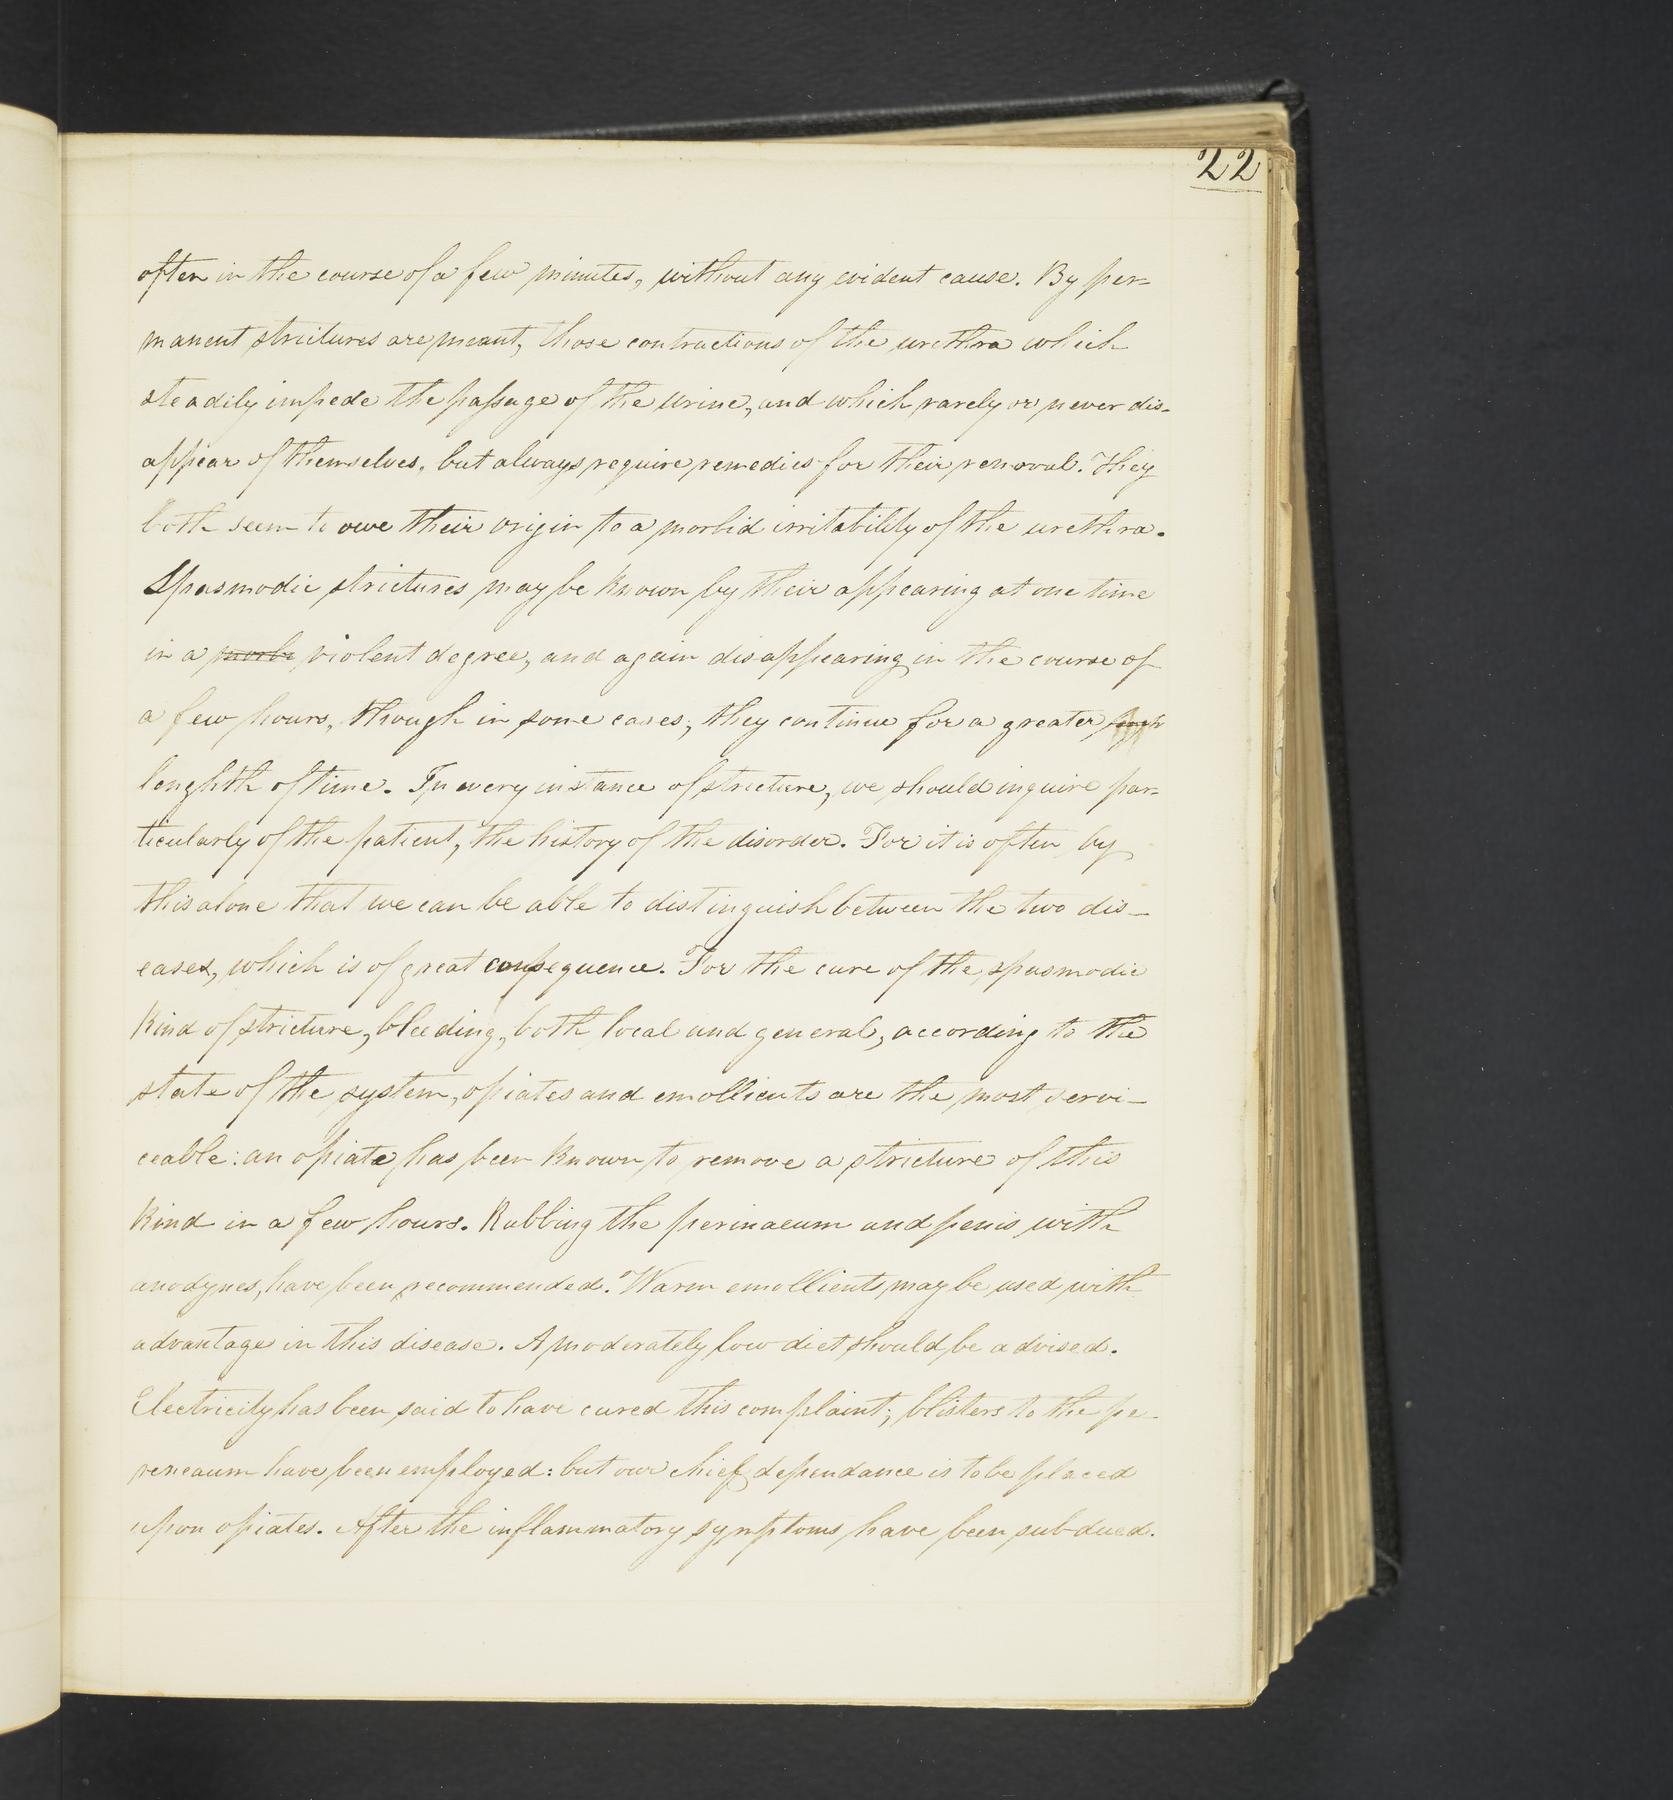 22
often in the course of a few minutes, without any evident cause. By per-
manent strictures are meant, those contractions of the urethra which
steadily impede the passage of the urine, and which rarely or never dis-
appear of themselves, but always require remedies for their removal. They
both seem to owe their origin to a morbid irritability of the urethra.
Spasmodic strictures may be known by their appearing at one time
in a violent degree, and again disappearing in the course of
a few hours, though in some cases, they continue for a greater
lenghth of time. In every instance of stricture, we should inquire par-
ticularly of the patient, the history of the disorder. For it is often by
this alone that we can be able to distinguish between the two dis-
eases, which is of great consequence. For the cure of the spasmodic
kind of stricture, bleeding, both local and general, according to the
state of the system, opiates and emollients are the most servi-
ceable: an opiate has been known to remove a stricture of this
kind in a few hours. Rubbing the perinaeum and penis with
anodynes, have been recommended. Warm emollients may be used with
advantage in this disease. A moderately low diet should be advised.
Electricity has been said to have cured this complaint; blisters to the pe-
reneaum have been employed: but our chief dependance is to be placed
upon opiates. After the inflammatory symptoms have been subdued.